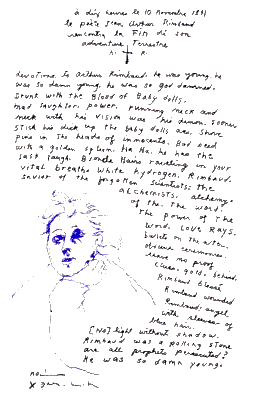 à dix heures le 10 Novembre 1891
le poète Jean Arthur Rimbaud
rencontra la Fin de son
adventure Terrestre
devotions to Arthur Rimbaud. he was young. he
was so damn young. he was so god damned.
Drunk with the Blood of Baby dolls.
mad laughter. power. running neck and
neck with his vision was his demon. sooner
stick his dick up the baby dolls ass. shove
pins in the heads of innocents. Bad seed
with a golden spleen. Ha Ha. he has the
last laugh. Blonde Hairs
vital breathe white hydrogen. Rimbaud.
savior of the forgotten scientists: the
alchemists. alchemy.
of the. The word.
The power of The
word. LOVE RAYS.
on the
obscene ceremonies.
leave no proof
gold. behind.
Rimbaud Blessed
Rimbaud wounded
Rimbaud: angel
with sleeves of
blue hair.
[NO] light without shadow.
Rimbaud was a rolling stone
are all prophets persecuted?
He was so damn young.
no